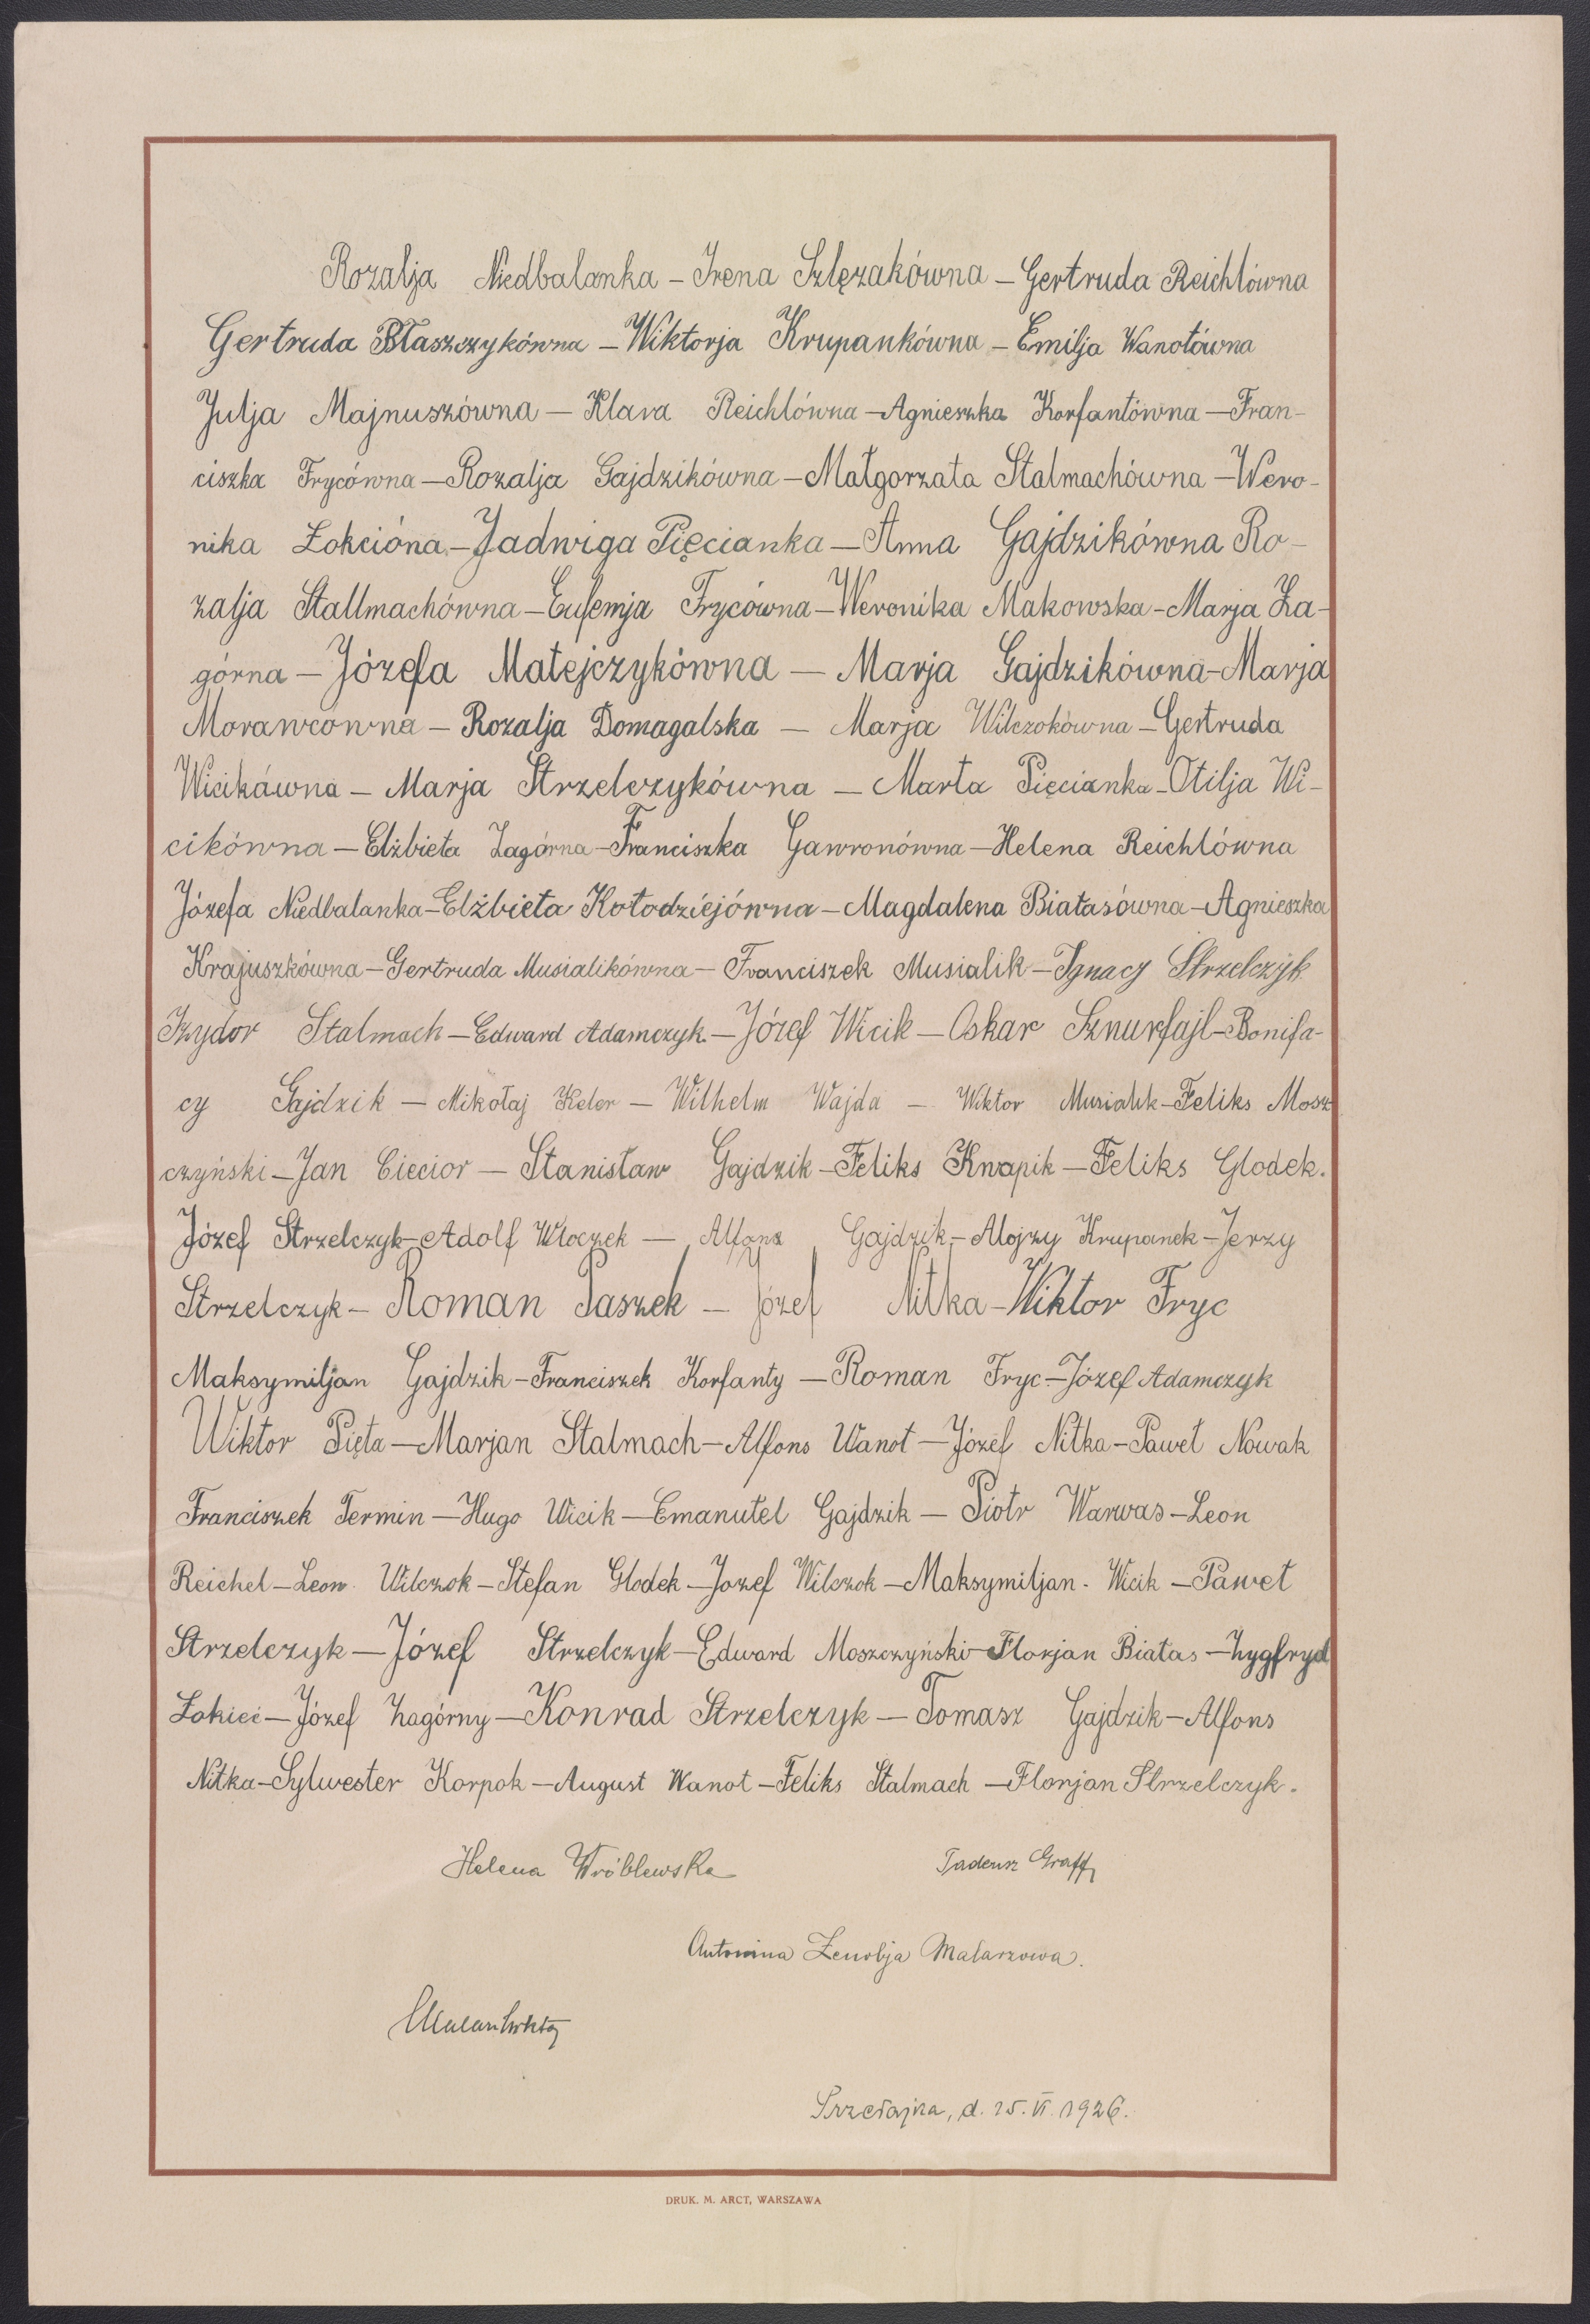 Rozalja Niedbalanka – Irena Szlęzakówna – Gertruda Reichlówna
Gertruda Błaszczykówna – Wiktorja Krupankówna – Emilja Wanotówna
Julja Majnuszówna – Klara Reichlówna – Agnieszka Korfantówna – Fran-
ciszka Frycówna – Rozalja Gajdzikówna – Małgorzata Stalmachówna – Wero-
nika Łokcióna – Jadwiga Pięcianka – Anna Gajdzikówna Ro-
zalja Stallmachówna – Eufemja Frycówna – Weronika Makowska – Marja Za-
górna – Józefa Matejczykówna – Marja Gajdzikówna – Marja
Morawcówna – Rozalja Domagalska – Marja Wilczokówna – Gertruda
Wicikówna – Marja Strzelczykówna – Marta Pięcianka – Otilja Wi-
cikówna – Elżbieta Zagórna – Franciszka Gawronówna – Helena Reichlówna
Józefa Niedbalanka – Elżbieta Kołodziejówna – Magdalena Białasówna – Agnieszka
Krajuszkówna – Gertruda Musialikówna – Franciszek Musialik – Ignacy Strzelczyk
Izydor Stalmach – Edward Adamczyk. – Józef Wicik – Oskar Sznurfajl – Bonifa-
cy Gajdzik – Mikołaj Keler – Wilhelm Wajda – Wiktor Musialik – Feliks Mosz
czyński – Jan Ciecior – Stanisław Gajdzik – Feliks Knapik – Feliks Glodek.
Józef Strzelczyk – Adolf Włoczek – Alfons Gajdzik – Alojzy Krupanek – Jerzy
Strzelczyk – Roman Paszek – Józef Nitka – Wiktor Fryc
Maksymiljan Gajdzik – Franciszek Korfanty – Roman Fryc – Józef Adamczyk
Wiktor Pięta – Marjan Stalmach – Alfons Wanot – Józef Nitka – Paweł Nowak
Franciszek Termin – Hugo Wicik – Emanuel Gajdzik – Piotr Warwas – Leon
Reichel – Leon Wilczok – Stefan Glodek – Józef Wilczok – Maksymiljan. Wicik – Paweł
Strzelczyk – Józef Strzelczyk – Edward Moszczyński – Florjan Białas – Zygfryd
Łokieć – Józef Zagórny – Konrad Strzelczyk – Tomasz Gajdzik – Alfons
Nitka – Sylwester Korpok – August Wanot – Feliks Stalmach – Florjan Strzelczyk.
Helena Wróblewska Tadeusz Graff
Antonina Zenobja Malarzowa.
Przełajka, d. 15. VI. 1926.
DRUK. M. ARCT, WARSZAWA